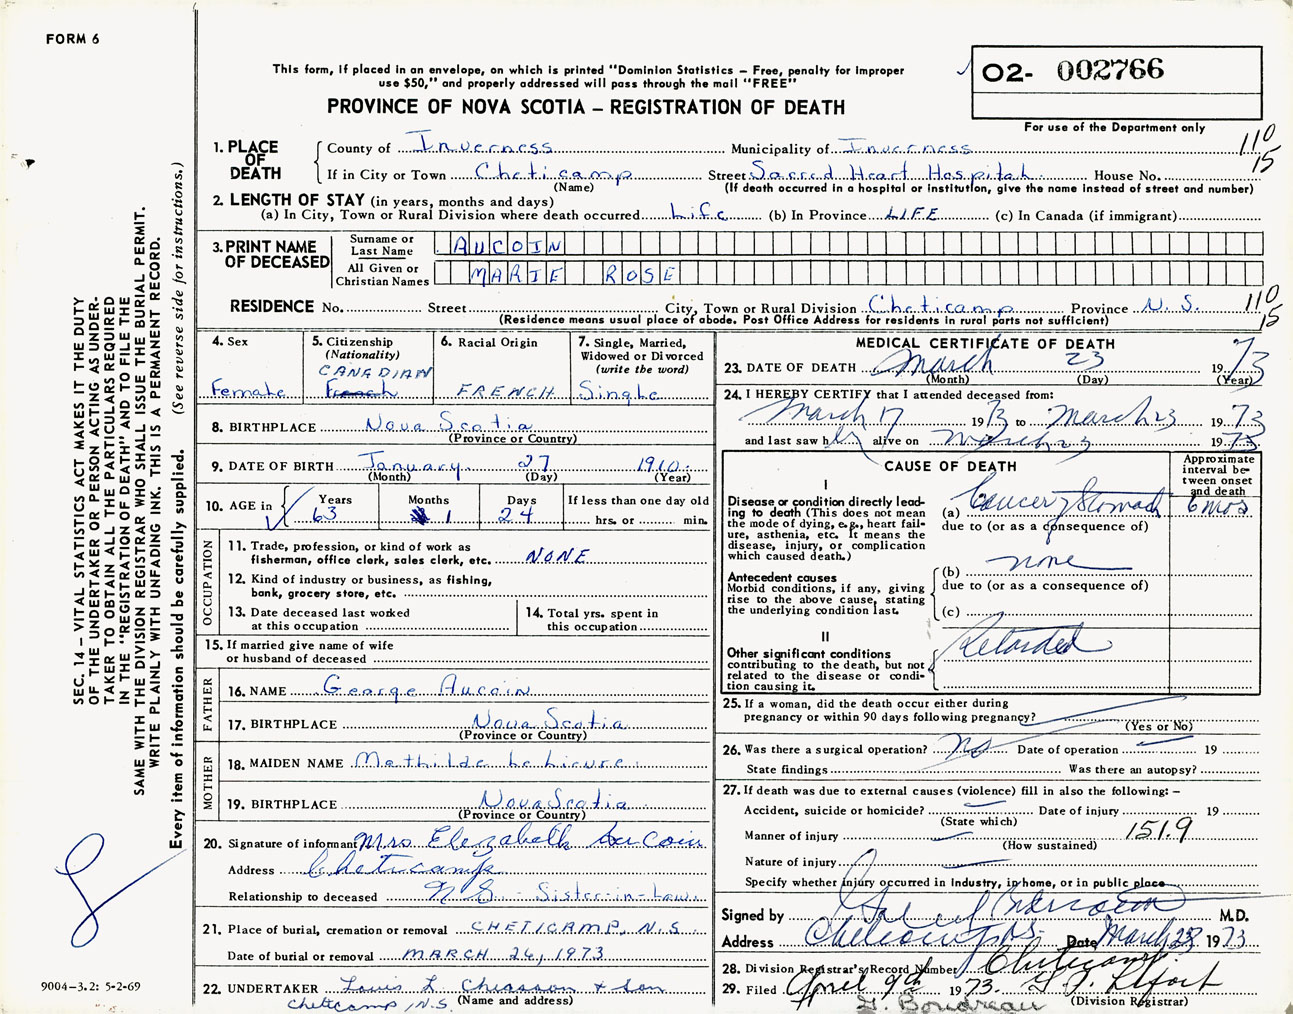 FORM 6
02- 002766
This form, if placed in an envelope, on which is printed "Dominion Statistics – Free, penalty for improper
use $50," and properly addressed will pass through the mail "FREE"
PROVINCE OF NOVA SCOTIA – REGISTRATION OF DEATH
For use of the Department only
110
15
1. PLACE OF DEATH
County of Inverness Municipality of Inverness
If in City or Town Cheticamp Street Sacred Heart Hospital House No.
(Name) (If death occurred in a hospital or institution, give the name instead of street and number)
2. LENGTH OF STAY (in years, months and days)
(a) In City, Town or Rural Division where death occurred Life (b) In Province LIFE (c) In Canada (if immigrant)
3. PRINT NAME OF DECEASED
Surname or Last Name AUCOIN
All Given or Christian Names MARIE ROSE
RESIDENCE No. Street City, Town or Rural Division Cheticamp Province N.S.
110
15
(Residence means usual place of abode. Post Office Address for residents in rural parts not sufficient)
4. Sex
Female
5. Citizenship
(Nationality)
CANADIAN
French
6. Racial Origin
FRENCH
7. Single, Married,
Widowed or Divorced
(write the word)
Single
8. BIRTHPLACE Nova Scotia
(Province or Country)
9. DATE OF BIRTH January 27 1910
(Month) (Day) (Year)
10. AGE in Years 63 Months 1 Days 24
If less than one day old
hrs. or min.
OCCUPATION
11. Trade, profession, or kind of work as
fisherman, office clerk, sales clerk, etc. NONE
12. Kind of industry or business, as fishing,
bank, grocery store, etc.
13. Date deceased last worked
at this occupation
14. Total yrs. spent in
this occupation
15. If married give name of wife
or husband of deceased
FATHER
16. NAME George Aucoin
17. BIRTHPLACE Nova Scotia
(Province or Country)
MOTHER
18. MAIDEN NAME Mathilde
19. BIRTHPLACE Nova Scotia
(Province or Country)
20. Signature of informant Mrs Elezabeth AuCoin
Address Cheticamp
Relationship to deceased N.S. - Sister-in-Law
21. Place of burial, cremation or removal CHETICAMP, N.S.
Date of burial or removal MARCH 26, 1973
22. UNDERTAKER Louis L Chiasson & Son
(Name and address)
Cheticamp, N.S.
MEDICAL CERTIFICATE OF DEATH
23. DATE OF DEATH March 23 1973
(Month) (Day) (Year)
24. I HEREBY CERTIFY that I attended deceased from:
March 17 1973 to March 23 1973
and last saw her alive on March 23 1973
CAUSE OF DEATH
Approximate
interval be-
tween onset
and death
I
Disease or condition directly lead-
ing to death (This does not mean
the mode of dying, e.g., heart fail-
ure, asthenia, etc. It means the
disease, injury, or complication
which caused death.)
(a) Cancer of Stomach 6 mos
due to (or as a consequence of)
(b) none
due to (or as a consequence of)
(c)
Antecedent causes
Morbid conditions, if any, giving
rise to the above cause, stating
the underlying condition last.
II
Other significant conditions
contributing to the death, but not
related to the disease or condi-
tion causing it.
Retarded
25. If a woman, did the death occur either during
pregnancy or within 90 days following pregnancy?
(Yes or No)
26. Was there a surgical operation? No Date of operation 19
State findings Was there an autopsy?
27. If death was due to external causes (violence) fill in also the following: –
Accident, suicide or homicide? Date of injury 19
(State which)
Manner of injury 1519
(How sustained)
Nature of injury
Specify whether injury occurred in Industry, in home, or in public place
Signed by M.D.
Address Cheticamp N.S. Date March 23 1973
28. Division Registrar's Record Number Cheticamp
29. Filed April 9th 1973.
(Division Registrar)
G. Boudreau
SEC. 14 – VITAL STATISTICS ACT MAKES IT THE DUTY
OF THE UNDERTAKER OR PERSON ACTING AS UNDER-
TAKER TO OBTAIN ALL THE PARTICULARS REQUIRED
IN THE "REGISTRATION OF DEATH" AND TO FILE THE
SAME WITH THE DIVISION REGISTRAR WHO SHALL ISSUE THE BURIAL PERMIT.
WRITE PLAINLY WITH UNFADING INK. THIS IS A PERMANENT RECORD.
Every item of information should be carefully supplied. (See reverse side for instructions.)
9004-3.2: 5-2-69